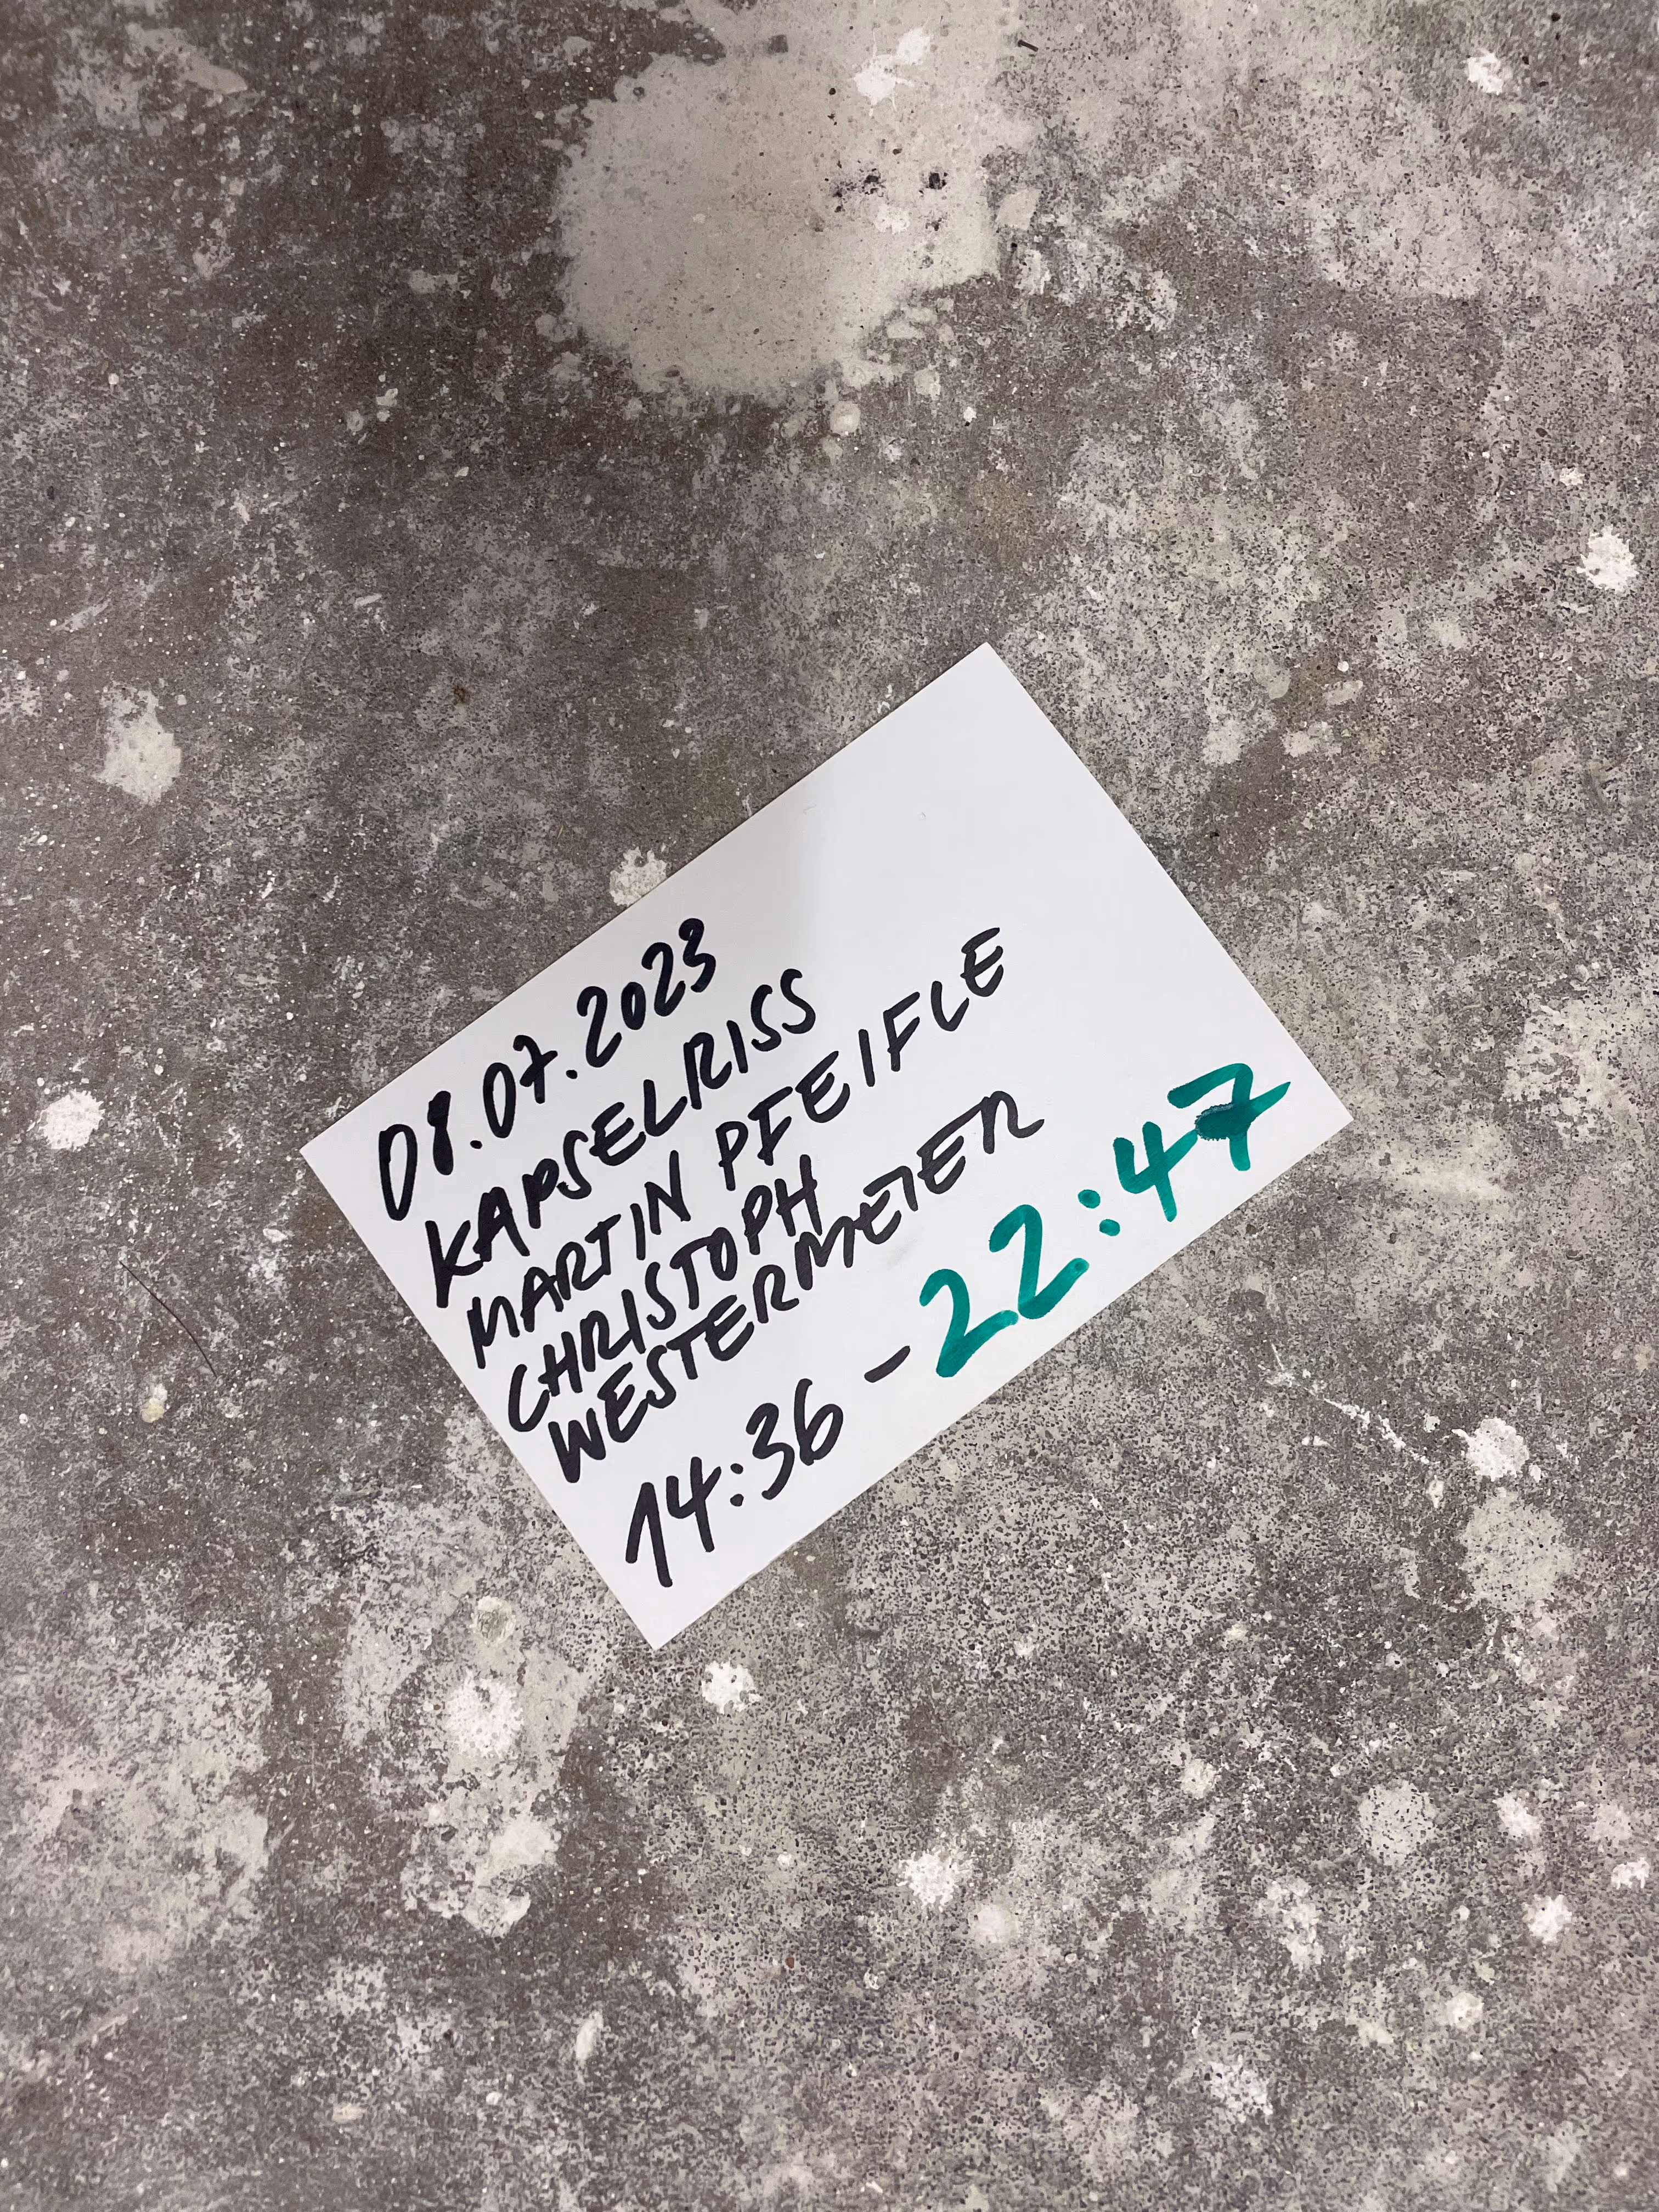 08.07.2023
KAPSELRISS
MARTIN PFEIFLE
CHRISTOPH
WESTERMEIER
14:36 - 22:47